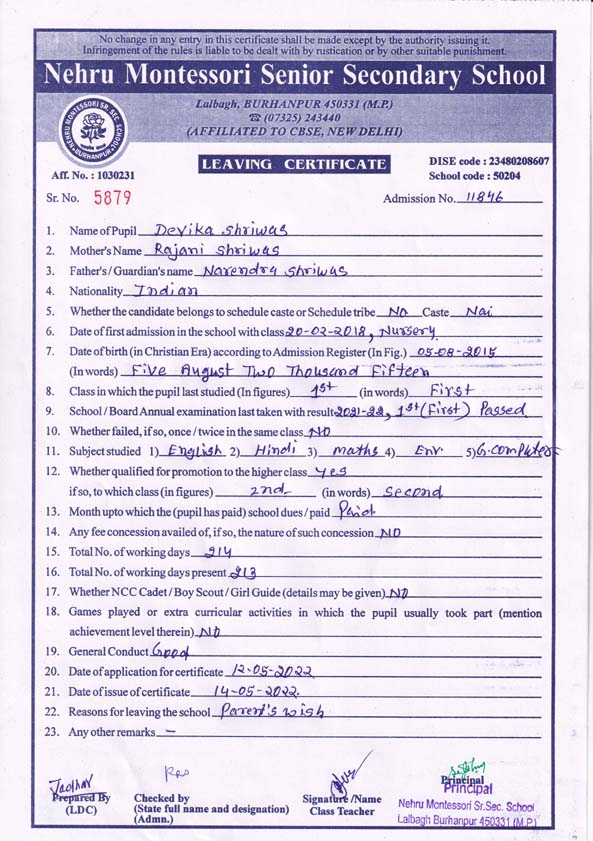 No change in any entry in this certificate shall be made except by the authority issuing it.
Infringement of the rules is liable to be dealt with by rustication or by other suitable punishment.
Nehru Montessori Senior Secondary School
Lalbagh, BURHANPUR 450331 (M.P.)
☎ (07325) 243440
(AFFILIATED TO CBSE, NEW DELHI)
NEHRU MONTESSORI SR. SEC. SCHOOL
BURHANPUR
LEAVING CERTIFICATE
DISE code : 23480208607
Aff. No. : 1030231
School code : 50204
Sr. No. 5879
Admission No. 11846
1. Name of Pupil Devika Shriwas
2. Mother's Name Rajani Shriwas
3. Father's / Guardian's name Narendra Shriwas
4. Nationality Indian
5. Whether the candidate belongs to schedule caste or Schedule tribe No Caste Nai
6. Date of first admission in the school with class 20-02-2018, Nursery
7. Date of birth (in Christian Era) according to Admission Register (In Fig.) 05-08-2015
(In words) Five August Two Thousand Fifteen
8. Class in which the pupil last studied (In figures) 1st (in words) First
9. School / Board Annual examination last taken with result 2021-22, 1st (First) Passed
10. Whether failed, if so, once / twice in the same class NO
11. Subject studied 1) English 2) Hindi 3) maths 4) Env. 5) G.computer
12. Whether qualified for promotion to the higher class yes
if so, to which class (in figures) 2nd (in words) Second
13. Month upto which the (pupil has paid) school dues / paid Paid
14. Any fee concession availed of, if so, the nature of such concession NO
15. Total No. of working days 214
16. Total No. of working days present 213
17. Whether NCC Cadet / Boy Scout / Girl Guide (details may be given) NO
18. Games played or extra curricular activities in which the pupil usually took part (mention
achievement level therein) NO
19. General Conduct Good
20. Date of application for certificate 12-05-2022
21. Date of issue of certificate 14-05-2022.
22. Reasons for leaving the school Parent's wish
23. Any other remarks –
Jadhav
Prepared By
(LDC)
Checked by
(State full name and designation)
(Admn.)
Signature /Name
Class Teacher
Principal
Principal
Nehru Montessori Sr.Sec. School
Lalbagh Burhanpur 450331 (M.P.)